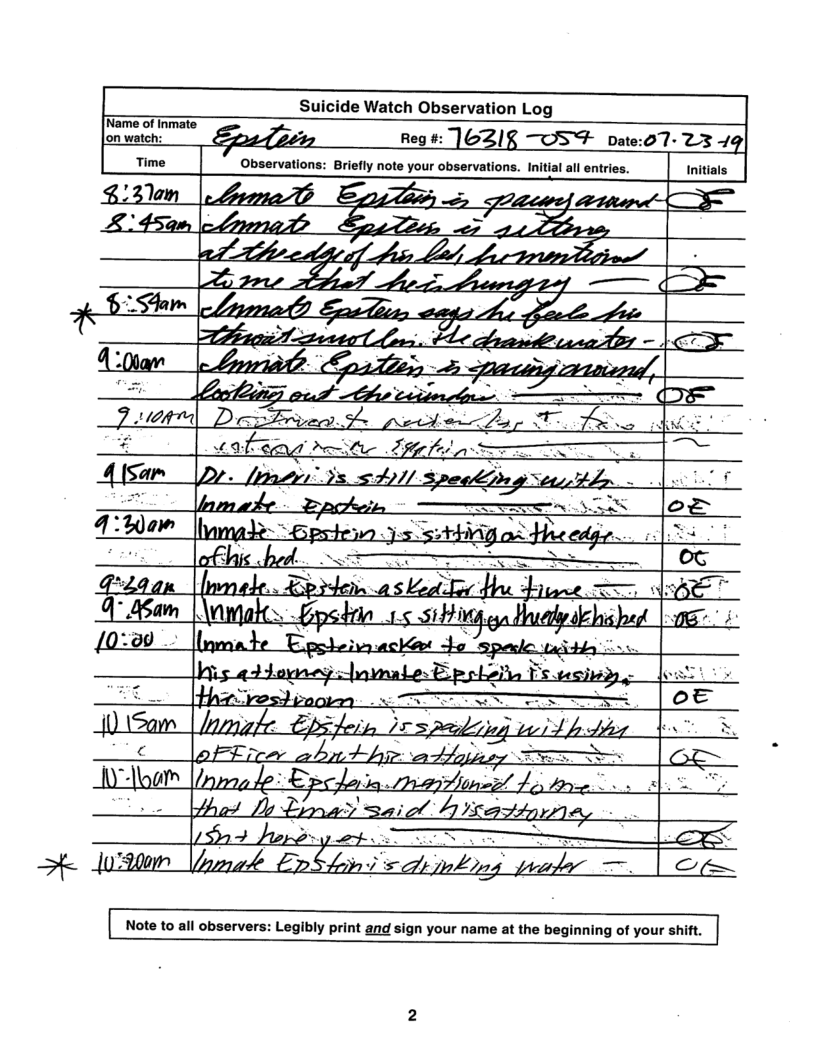 Suicide Watch Observation Log
Name of Inmate
on watch: Epstein Reg #: 76318-054 Date: 07-23-19
Time Observations: Briefly note your observations. Initial all entries. Initials
8:37am Inmate Epstein is pacing around OE
8:45am Inmate Epstein is sitting
at the edge of his bed, he mentioned
to me that he is hungry — OE
* 8:54am Inmate Epstein says he feels his
throat swollen. He drank water - OE
9:00am Inmate Epstein is pacing around,
looking out the window — OE
9:10AM
Epstein
9 15am Dr. Imeri is still speaking with
Inmate Epstein — OE
9:30am Inmate Epstein is sitting on the edge
of his bed OE
9:39am Inmate Epstein asked for the time — OE
9:45am Inmate Epstein is sitting on the edge of his bed OE
10:00 Inmate Epstein asked to speak with
his attorney. Inmate Epstein is using
the restroom OE
10 15am Inmate Epstein is speaking with the
officer about his attorney — OE
10:16am Inmate Epstein mentioned to me
that said his attorney
isn't here yet. — OE
* 10:20am Inmate Epstein is drinking water — OE
Note to all observers: Legibly print and sign your name at the beginning of your shift.
2